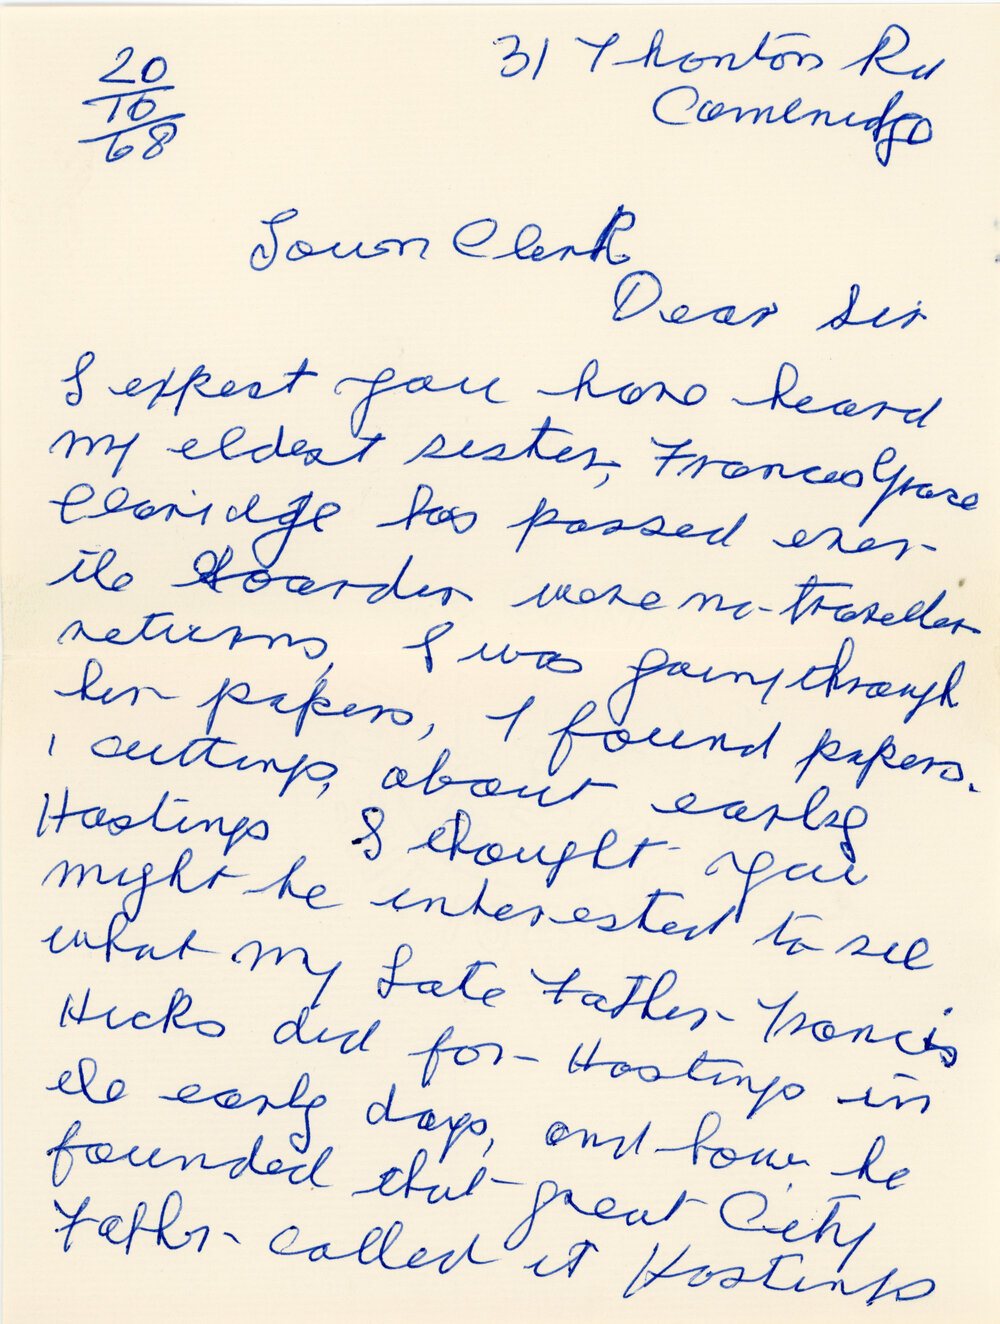 20
10
68
31 Thonton Rd
Cambridge
Town Clerk
Dear Sir
I expect you have heard
my eldest sister, Frances Grace
Claridge has passed over
the Boarder were no traveller
returns, I was going through
her papers, I found papers.
, cuttings, about early
Hastings I thought you
might be interested to see
what my Late Father Francis
Hicks did for Hastings in
the early days, and how he
founded that great City
Father called it Hastings